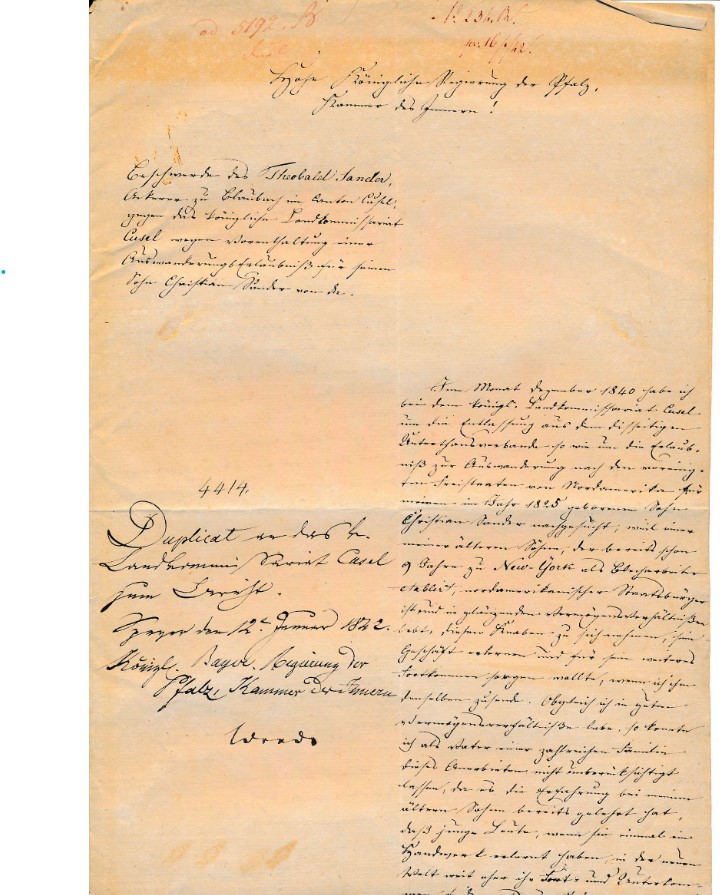 ad 5192.
N. 234.
Hohe Königliche Regierung der Pfalz,
Kammer des Innern!
Beschwerde des Theobald Sander,
Ackerer zu Blaubach im Canton Cusel,
gegen das königliche Landkommissariat
Cusel wegen Vorenthaltung einer
Auswanderungs Erlaubniß für seinen
Sohn Christian Sander von da.
Im Monat Dezember 1840 habe ich
bei dem königl. Landkommissariat Cusel
um die Entlassung aus dem diesseitigen
Unterthansverbande so wie um die Erlaub-
niß zur Auswanderung nach den vereinig-
ten Freistaaten von Nordamerika für
meinen im Jahr 1825 gebornen Sohn
Christian Sander nachgesucht, weil einer
meiner ältern Söhne, der bereits schon
9 Jahre zu New-York als Blecharbeiter
etablirt, nordamerikanischer Staatsbürger
ist und in glänzenden Vermögensverhältnißen
lebt, diesen Knaben zu sich nehmen, sein
Geschäft erlernen und für sein weiteres
Fortkommen sorgen wollte, wenn ich ihm
denselben zusende. Obgleich ich in guten
Vermögensverhältnißen lebe, so konnte
ich als Vater einer zahlreichen Familie
dieses Anerbieten nicht unberücksichtigt
lassen, da es die Erfahrung bei meinem
ältern Sohne bereits gelehrt hat,
daß junge Leute, wenn sie einmal ein
Handwerk erlernt haben, in der neuen
Welt weit eher ihr Fort- und Unterkom-
4414.
Duplicat an das k.
Landkommissariat Cusel
zum Bericht.
Speyer den 12t. Januar 1842.
Königl. Bayer. Regierung der
Pfalz, Kammer des Innern